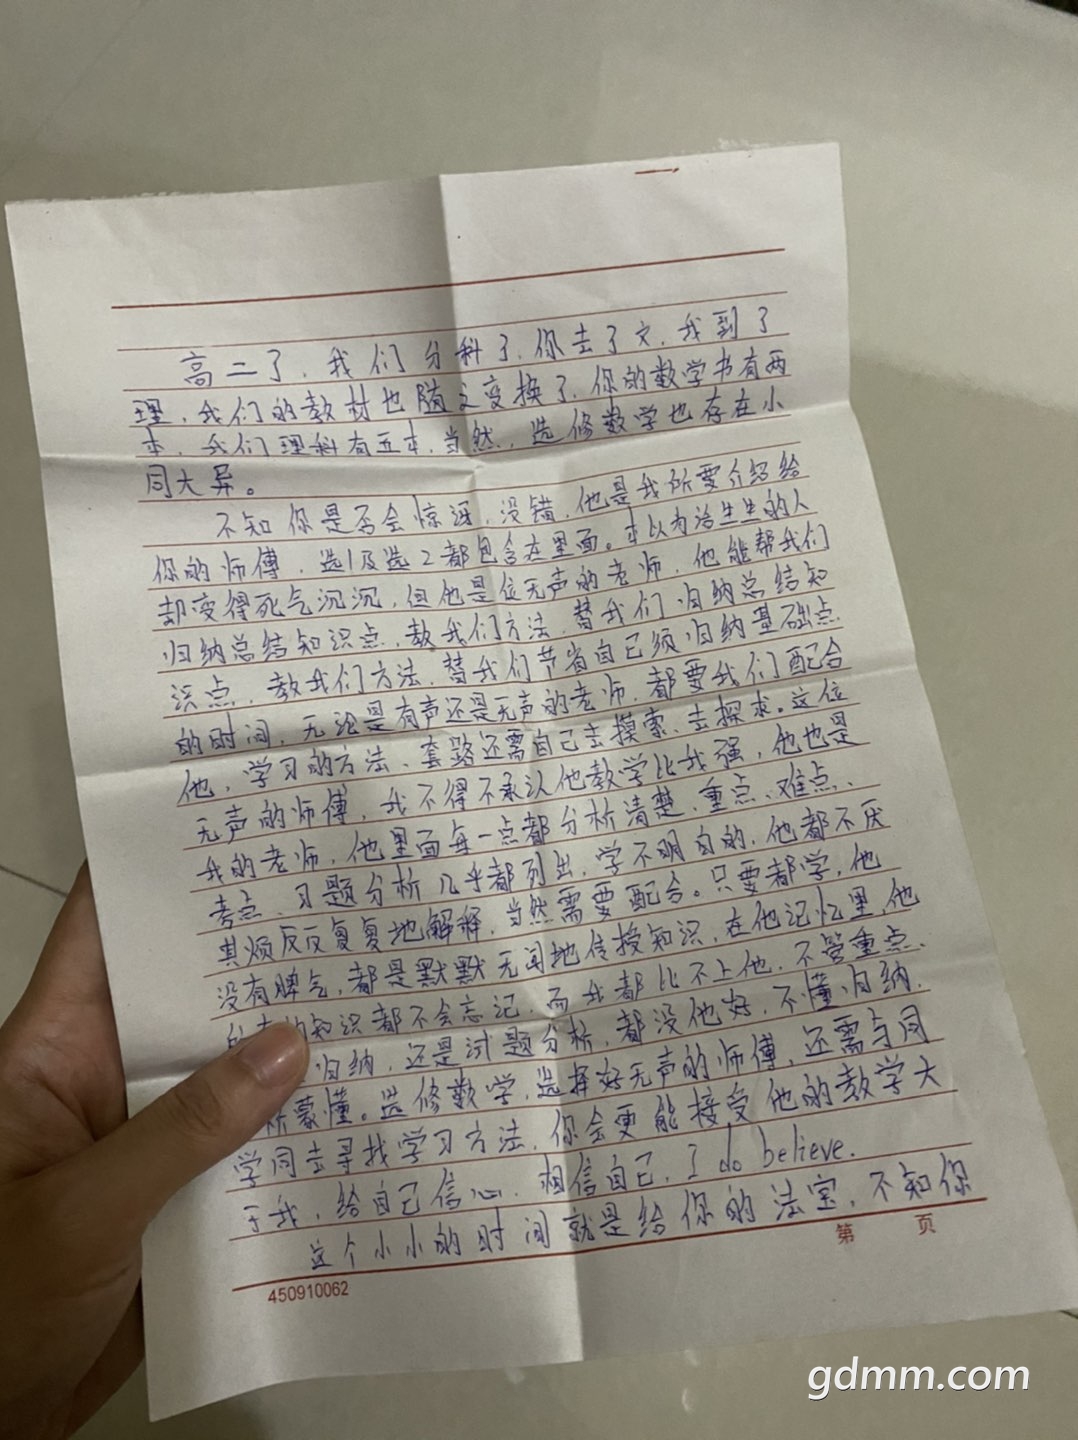 高二了，我们分科了，你去了文，我到了
理，我们的教材也随之变换了，你的数学书有两
本，我们理科有五本，当然，选修数学也存在小
同大异。
不知你是否会惊讶，没错，他是我所要介绍给
你的师傅，选1及选2都包含在里面。本以为活生生的人
却变得死气沉沉，但他是位无声的老师，他能帮我们
归纳总结知识点，教我们方法，替我们归纳总结知
识点，教我们方法，替我们节省自己须归纳基础点
的时间，无论是有声还是无声的老师，都要我们配合
他，学习的方法、套路还需自己去摸索、去探求。这位
无声的师傅，我不得不承认他教学比我强，他也是
我的老师，他里面每一点都分析清楚，重点、难点、
考点、习题分析几乎都列出，学不明白的，他都不厌
其烦反反复复地解释，当然需要配合。只要都学，他
没有脾气，都是默默无闻地传授知识，在他记忆里，他
的知识都不会忘记，而我都比不上他，不管重点、
归纳，还是试题分析，都没他好，不懂归纳，
所蒙懂。选修数学，选择好无声的师傅，还需与同
学同去寻找学习方法，你会更能接受他的教学大
于我，给自己信心，相信自己，I do believe.
这个小小的时间就是给你的法宝，不知你
第 页
450910062
gdmm.com